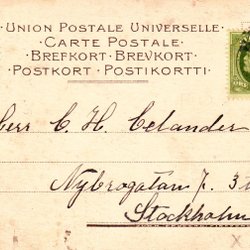 UNION POSTALE UNIVERSELLE
CARTE POSTALE
BREFKORT BREVKORT
POSTKORT POSTIKORTTI
Herr C. H. Celander
Nybrogatan 7. 3
Stockholm